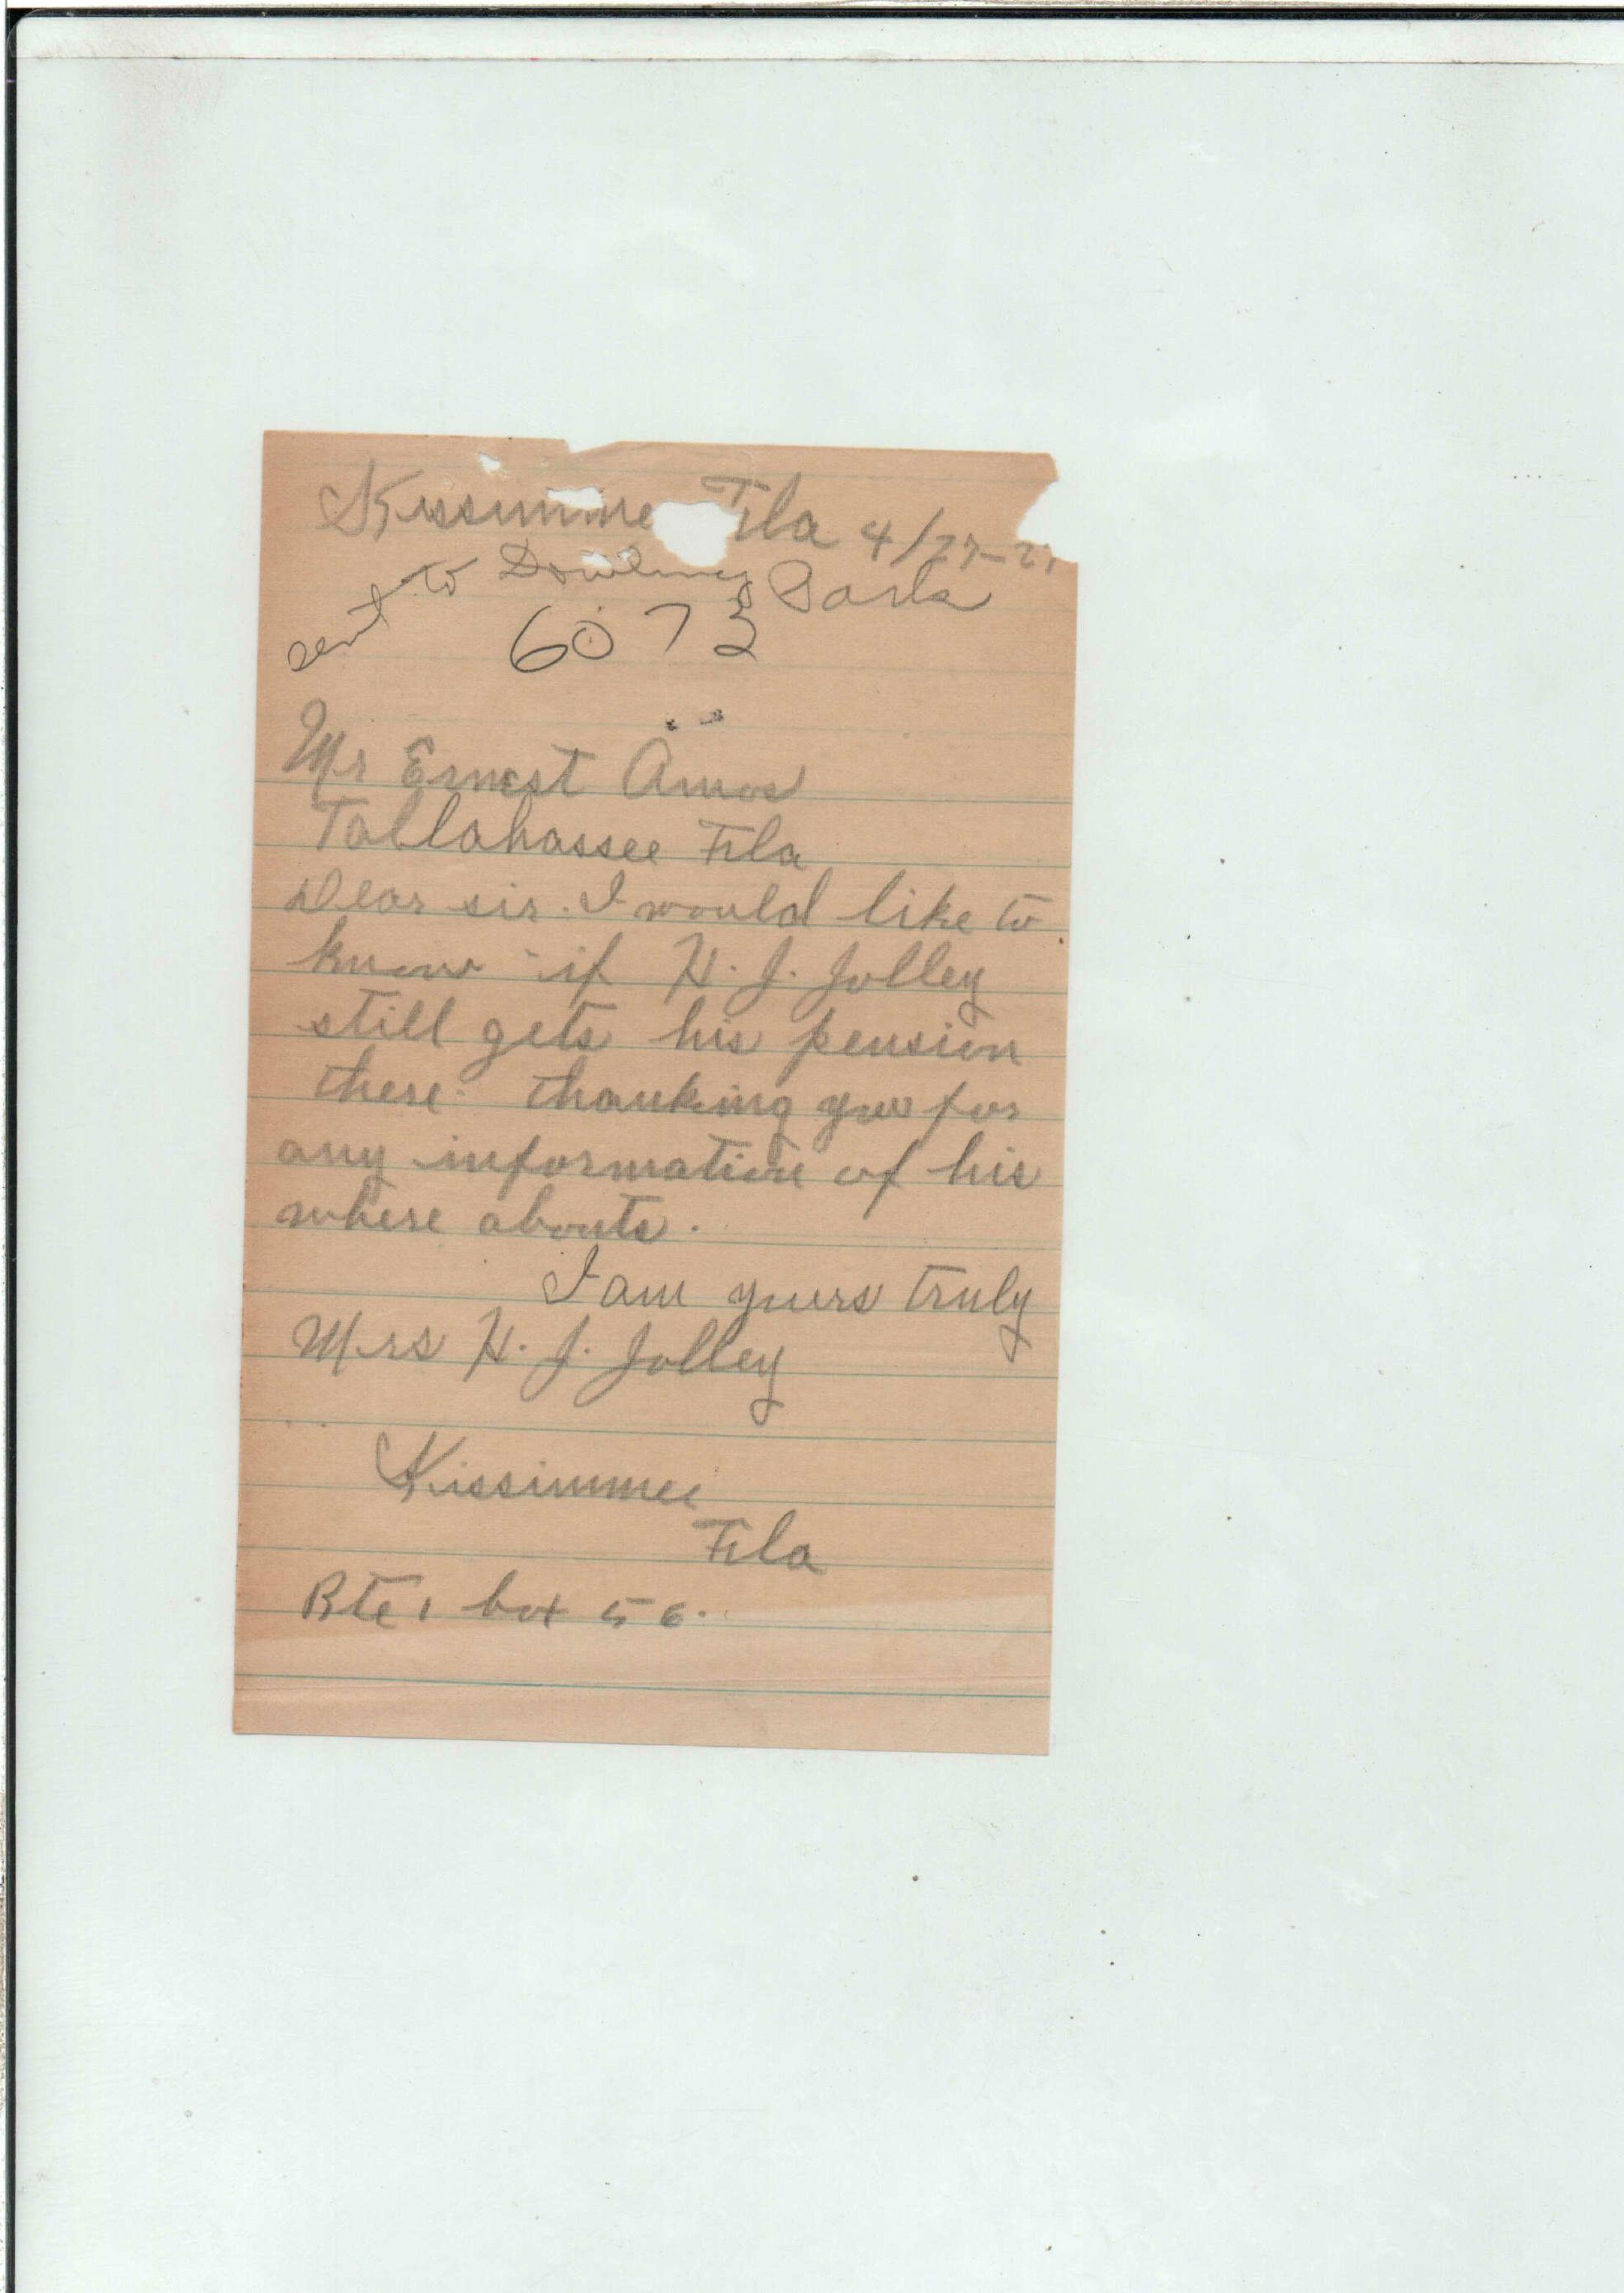 Kissimmee Fla 4/27-27
sent to Dowling Park
6073
Mr Ernest Amos
Tallahassee Fla
Dear sir. I would like to
know if H. J. Jolley
still gets his pension
there. thanking you for
any information of his
where abouts.
I am yours truly
Mrs H. J. Jolley
Kissimmee
Fla
Rte 1 box 56.